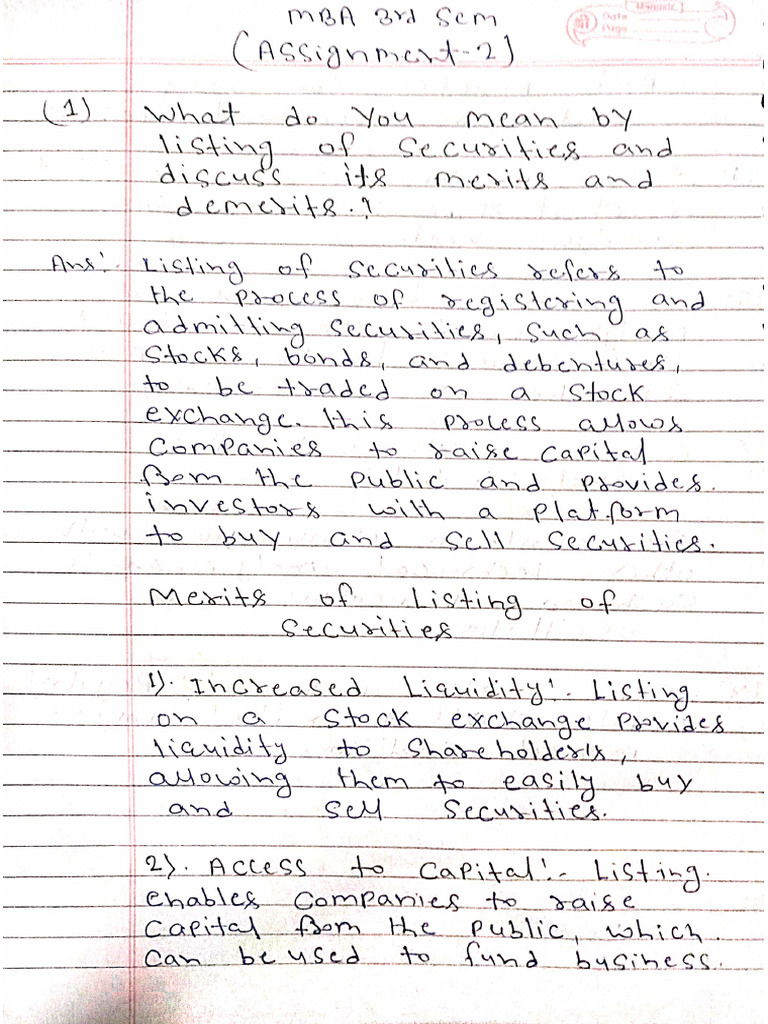 MBA 3rd Sem
Date
Page
(Assignment-2)
(1) What do you mean by
listing of securities and
discuss its merits and
demerits.?
Ans:- Listing of securities refers to
the process of registering and
admitting securities, such as
stocks, bonds, and debentures,
to be traded on a stock
exchange. this process allows
companies to raise capital
from the public and provides.
investors with a platform
to buy and sell securities.
Merits of Listing of
Securities
1). Increased Liquidity:- Listing
on a stock exchange provides
liquidity to shareholder's,
allowing them to easily buy
and sell securities.
2). Access to Capital:- Listing.
enables companies to raise
capital from the public, which.
can be used to fund business.